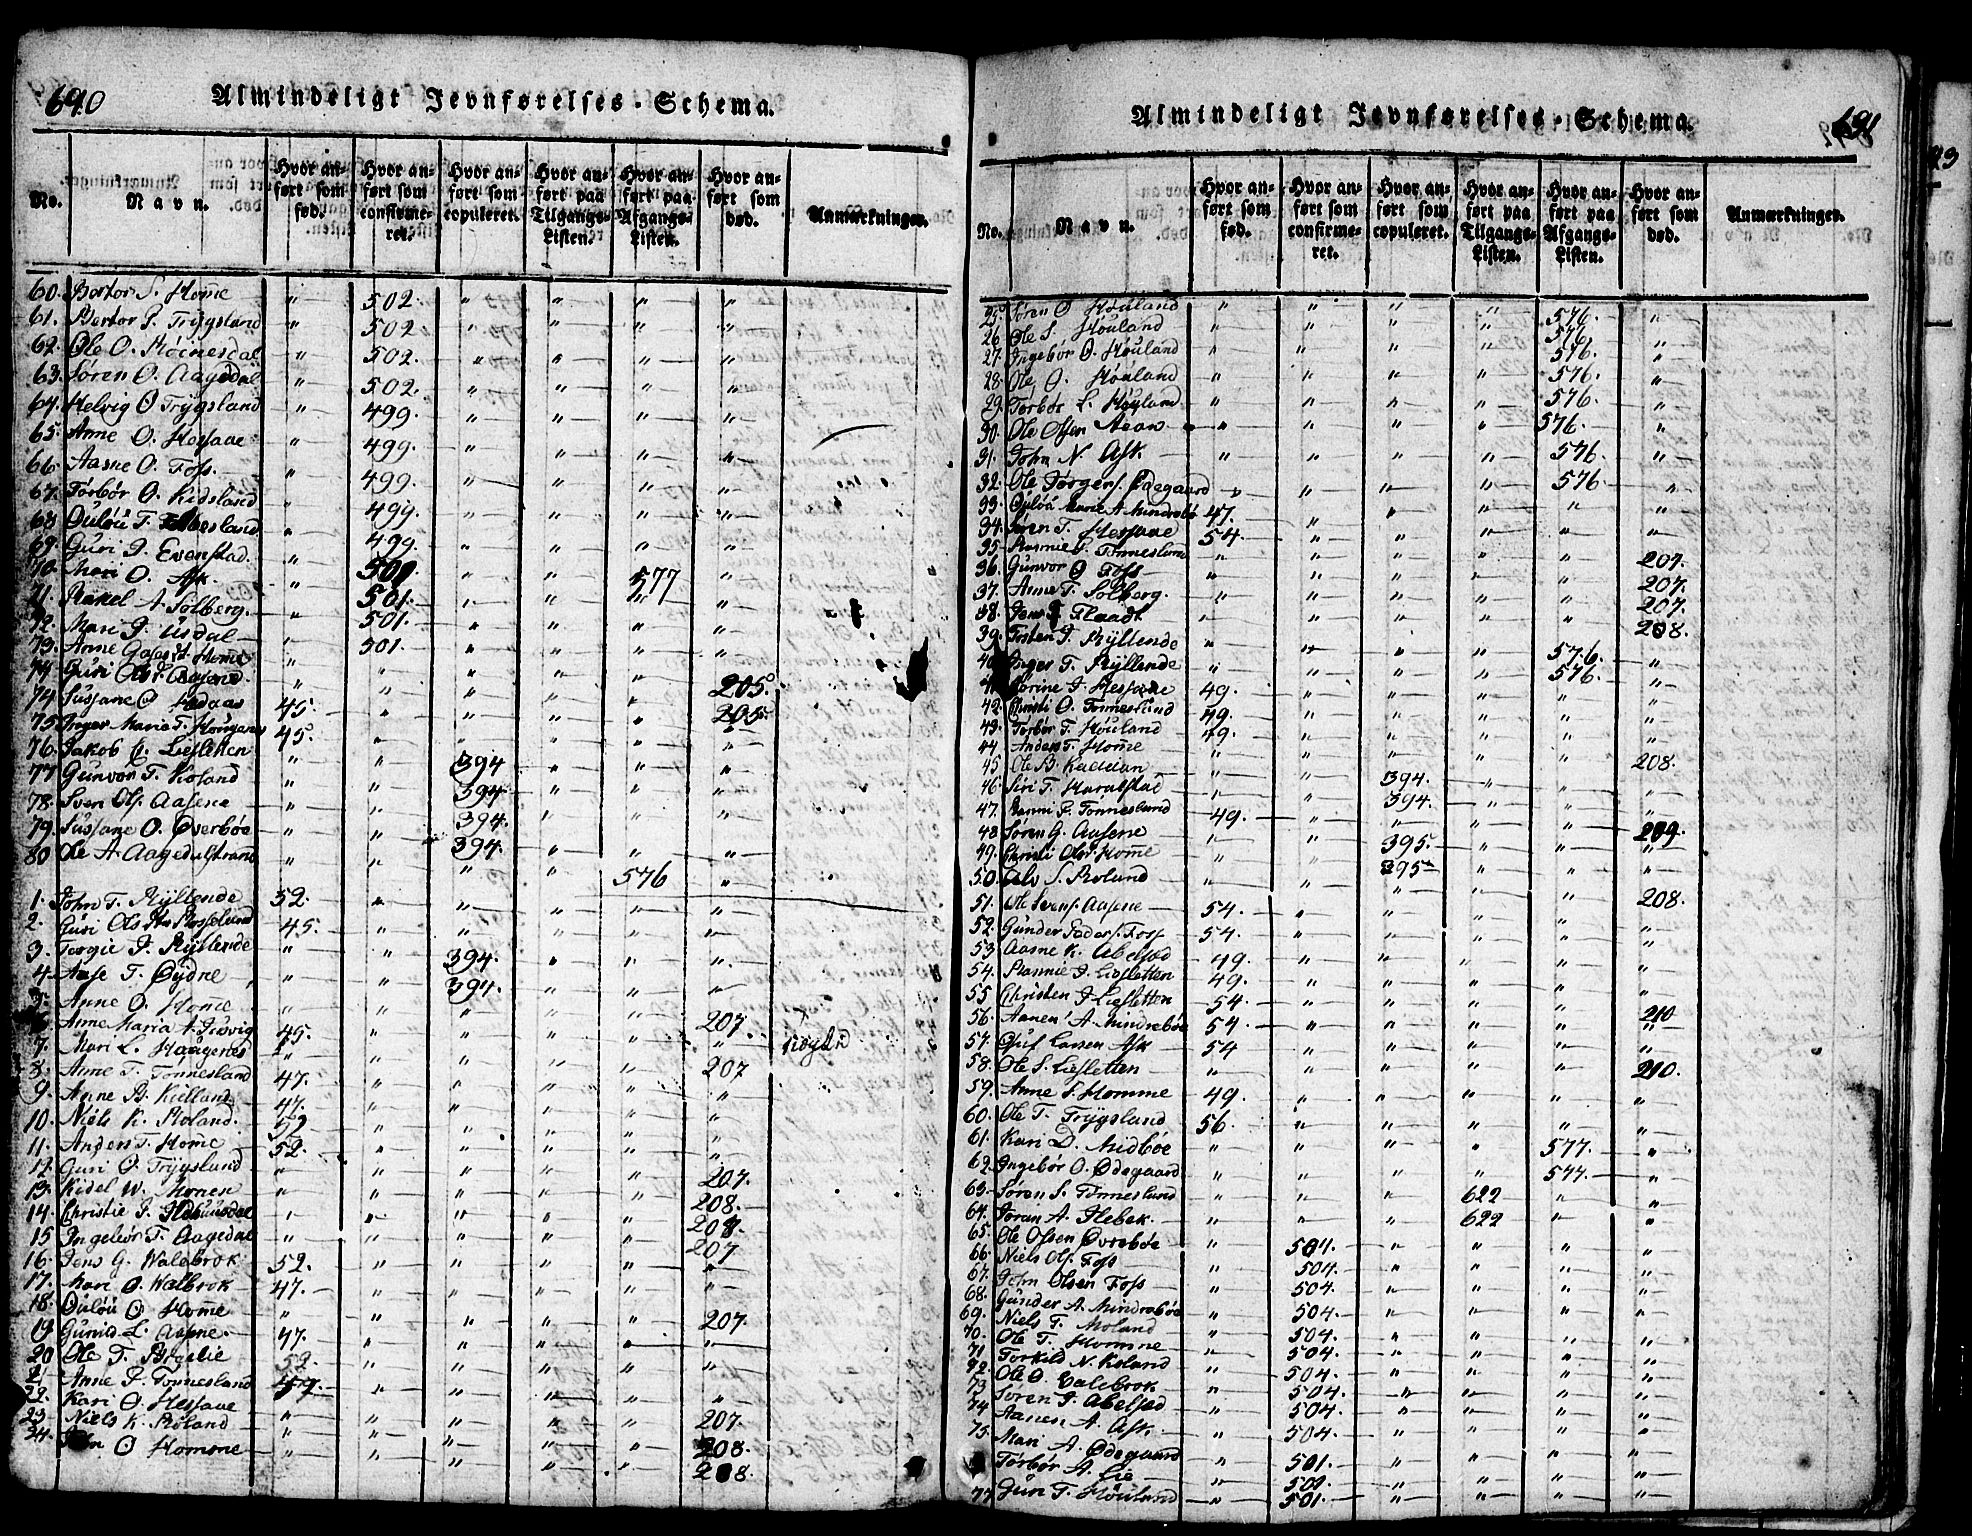 690
Almindeligt Jevnførelses-Schema.
No. Navn. Hvor anført som fød. Hvor anført som confirmeret. Hvor anført som copuleret. Hvor anført paa Tilgangs-Listen. Hvor anført paa Afgangs-Listen. Hvor anført som død. Anmærkninger.
60. S. Home " 502. " " " "
61. P. Trygsland " 502. " " " "
62. Ole O. " 502. " " " "
63. Søren O. Aagedal " 502. " " " "
64. Helvig O Trygsland " 499. " " " "
65. Anne O. Hessaae " 499. " " " "
66. Aasne O. Foss. " 499. " " " "
67. Torbor O. Kidsland " 499. " " " "
68. T. " 499. " " " "
69. Guri J. Evenstad. " 501 " " 577 "
70. Mari O. Ask. " 501. " " " "
71. Rakel A. Solberg. " 501. " " " "
72. Mari P. Usdal " 501. " " " "
73. Anne Home " " " " " 205.
74 Guri Aasene " " " " " 205.
74 Susane O 45. " " " " "
75. Inger Marie T. 45. " " " " "
76. Jakob O. Liesletten " " 394 " " "
77 Gunvor T. Roland " " 394 " " "
78. Sven Ols. Aasene " " 394. " " "
79. Susane O. Øverbøe " " 394. " " "
80 Ole A. Aagedalstrand " " " " 576 "
1. John T. Ryllende 52. " " " " "
2. Guri Ols 45. " " " " "
3. Tergie J. Ryllende " " 394. " " "
4. Aase T. Øydne " " 394. " " "
5. Anne O. Home " " " " " 207.
6. Anne Maria A. 45. " " " " "
7. Mari L. Haagenes " " " " " 207
8. Anne T. Tonnesland 47. " " " " "
9. Anne B. Kielland 47. " " " " "
10. Niels K. Roland. 52. " " " " "
11. Anders T. Home 52. " " " " "
12. Guri O. Trygsland " " " " " 207.
13. Kidel W. Monen " " " " " 208.
14. Christie J. " " " " " 208.
15 Ingebor T. Aagedal " " " " " 207
16. Jens G. Walebrok 52. " " " " "
17. Mari O. Walbrok 47. " " " " "
18. O Home " " " " " 207.
19 Gunild L. Aasene. 47. " " " " "
20 Ole T. 52. " " " " "
21 Anne J. Tonnesland 59. " " " " "
22. Kari O. Hessaae " " " " " 207.
23. Niels K. Roland " " " " " 208.
24. John O Homme " " " " " 208.
691
Almindeligt Jevnførelses-Schema.
No. Navn. Hvor anført som fød. Hvor anført som confirmeret. Hvor anført som copuleret. Hvor anført paa Tilgangs-Listen. Hvor anført paa Afgangs-Listen. Hvor anført som død. Anmærkninger.
25. Søren O Houland " " " " 576. "
26. Ole S. Houland " " " " 576. "
27. Ingebor O. Houland " " " " 576. "
28. Ole O. Houland " " " " 576. "
29. Torbor L. Houland " " " " 576. "
30. Ole Olsen " " " " 576. "
31. John N. Ask " " " " 576. "
32. Ole Jorgens. Ødegaard " " " " 576 "
33. Marie A Mindrebø 47. " " " " "
34. Søren T. Hessaae 54. " " " " "
35. J. Tonneslund " " " " " 207.
36. Gunvor O Foss " " " " " 207.
37. Anne T. Solberg. " " " " " 207.
38. Jens Flaadt " " " " " 208.
39. Torsten J. Ryllende " " " " 576. "
40. Inger T. Ryllende " " " " 576. "
41. J. Hessaae 49. " " " " "
42. Christi O. Tonneslund 49. " " " " "
43. Torbor T. Houland 49. " " " " "
44. Anders T. Home " " " " " 208.
45 Ole B. " " 394. " " "
46. Siri T. Haraldstad " " 394. " " "
47. P. Tonneslund 49. " " " " "
48 Søren G. Aasene " " 395. " " 209.
49. Christi Olsd. Home " " 395 " " "
50. S. Roland " " " " " 208.
51. Ole Svens. Aasene 54. " " " " "
52. Gunder Peders. Foss 54. " " " " "
53. Aasne K. Abelsæd 49. " " " " "
54. J. Liesletten 49. " " " " "
55 Christen J Liesletten 54. " " " " "
56. Aanen A. Mindrebøe 54. " " " " 210
57. Larsen Ask 54 " " " " "
58. Ole S. Liesletten " " " " " 210.
59. Anne S. Homme 49. " " " " "
60. Ole T. Trygsland 56. " " " " "
61. Kari D. Midbøe " " " " 577. "
62. Ingebor O. Ødegaard " " " " 577. "
63. Søren S. Tonneslund " " " 622 " "
64. Joran A. Flebek. " " " 622 " "
65. Ole Olsen Øvrebøe " 504. " " " "
66. Niels Ols. Foss " 504. " " " "
67. John Olsen Foss " 504. " " " "
68. Gunder A. Mindrebøe " 504. " " " "
69. Niels T. Moland " 504. " " " "
70. Ole T. Homme " 504. " " " "
71 Torkild N. Roland " 504. " " " "
72. Ole O. Valebrok " 504. " " " "
73 Søren J. Abelsæd " 504. " " " "
74 Aanen A. Ask. " 504. " " " "
75. Mari A. Ødegaard " 501. " " " "
Torbor A. Lie " 501. " " " "
77 Guri T. Houland " 501. " " " "